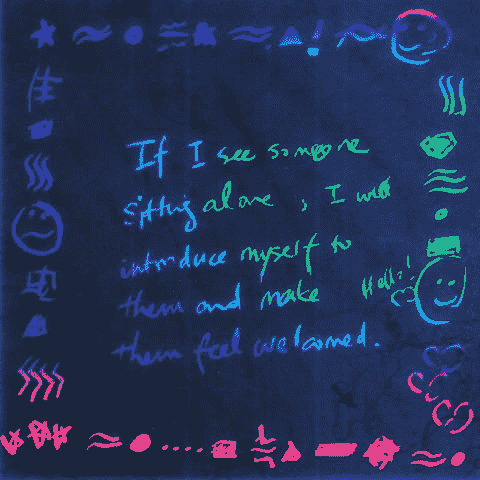 If I see someone
sitting alone, I will
introduce myself to
them and make
Hello!
them feel welcomed.